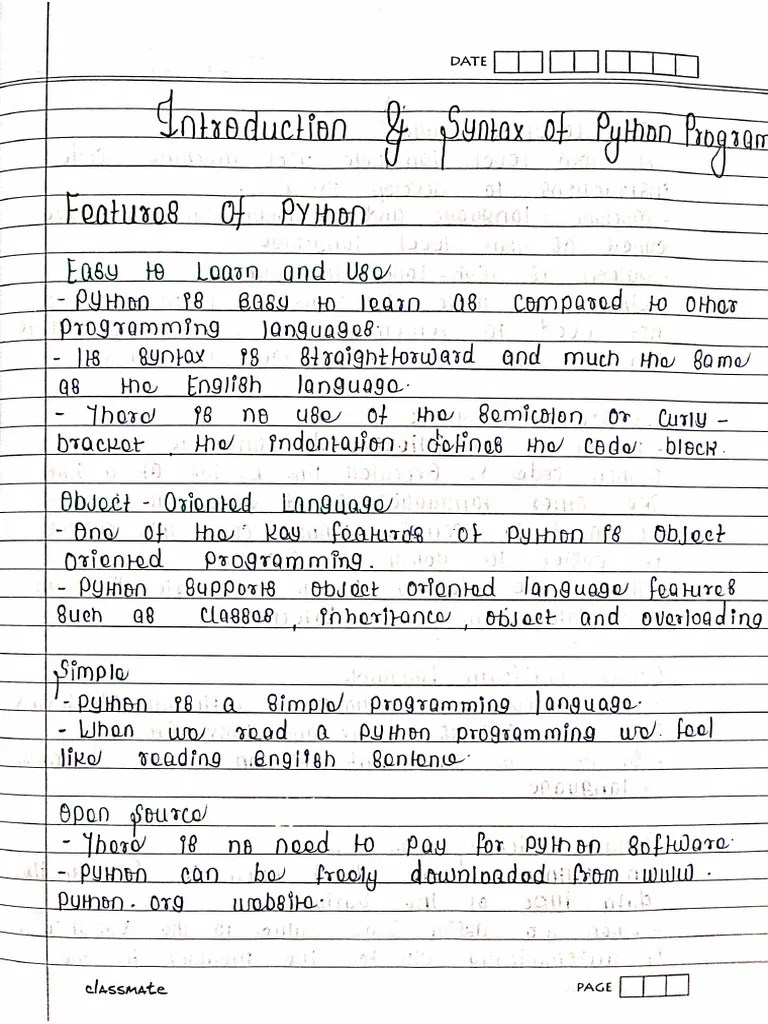 DATE
Introduction & Syntax of Python Program
Features of Python
Easy to Learn and Use
- Python is easy to learn as compared to other
programming languages.
- Its syntax is straightforward and much the same
as the English language.
- There is no use of the semicolon or curly -
bracket, the indentation defines the code block.
Object - Oriented Language
- One of the key features of python is object
oriented programming.
- Python supports object oriented language features
such as classes, inheritance, object and overloading
Simple
- Python is a simple programming language.
- When we read a python programming we feel
like reading english sentence.
Open Source
- There is no need to pay for python software.
- Python can be freely downloaded from www.
python.org website.
classmate
PAGE